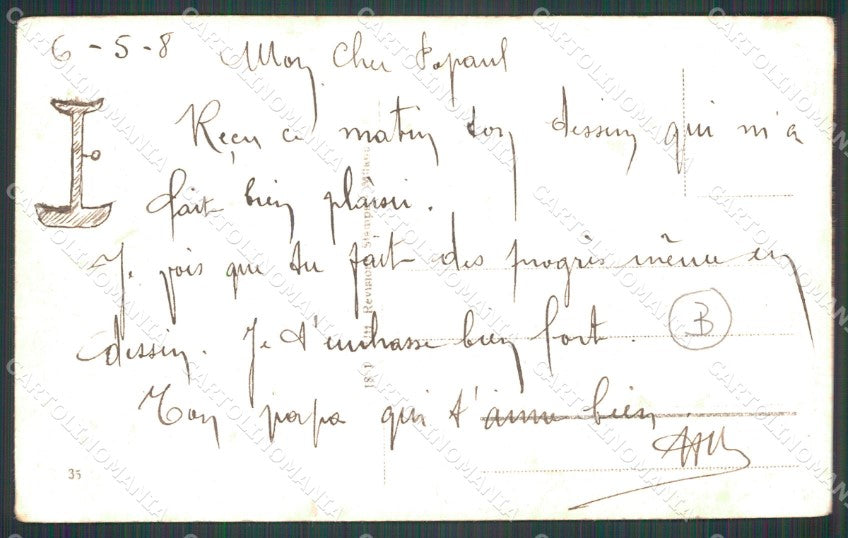 6-5-8 Mon cher Popaul
Reçu ce matin ton dessin qui m'a
fait bien plaisir.
Je vois que tu fait des progrès même en
dessin. Je t'embrasse bien fort.
Ton papa qui t'aime bien.
B
35
CARTOLINOMANIA